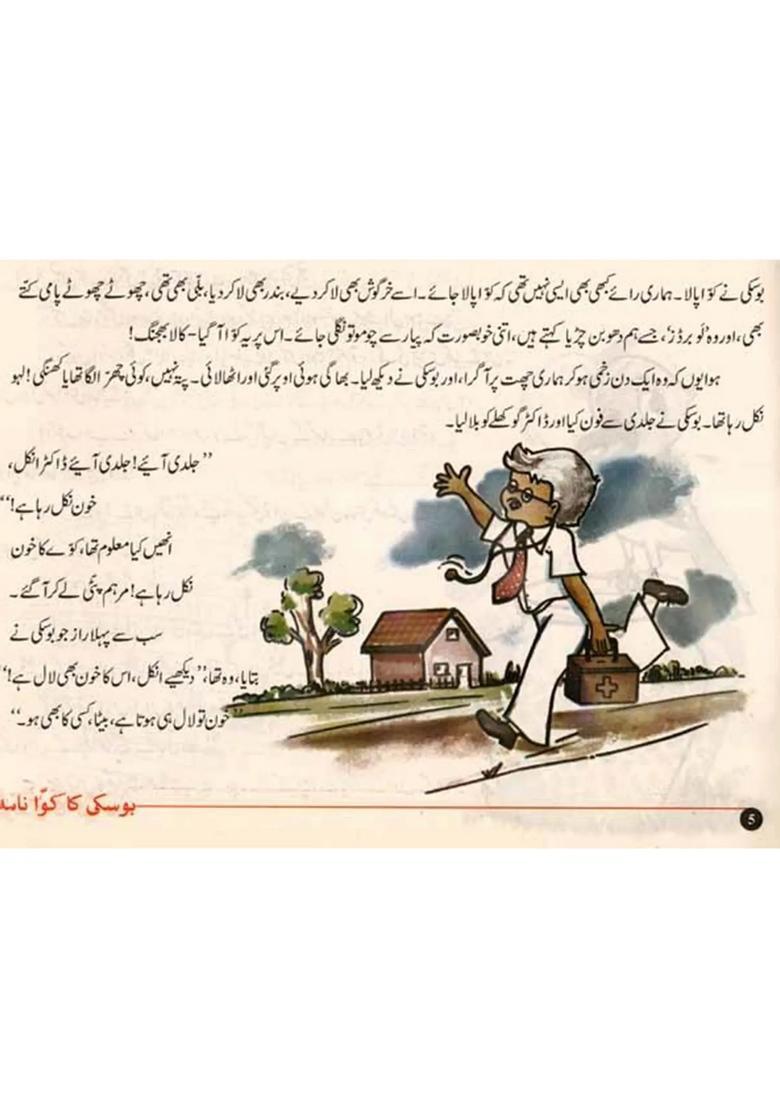 بوسکی نے کوّا پالا۔ ہماری رائے کبھی بھی ایسی نہیں تھی کہ کوّا پالا جائے۔ اسے خرگوش بھی لا کر دیے، بندر بھی لا کر دیا، بلّی بھی تھی، چھوٹے چھوٹے پامی کتّے
بھی، اور وہ 'لَو برڈز'، جسے ہم دھوبن چڑیا کہتے ہیں، اتنی خوبصورت کہ پیار سے چومو تو نگلی جائے۔ اس پر یہ کوّا آ گیا - کالا بھجنگ!
ہوا یوں کہ وہ ایک دن زخمی ہو کر ہماری چھت پر آ گرا، اور بوسکی نے دیکھ لیا۔ بھاگی ہوئی اوپر گئی اور اٹھا لائی۔ پتہ نہیں، کوئی چھرّا لگا تھا یا کھنگی! لہو
نکل رہا تھا۔ بوسکی نے جلدی سے فون کیا اور ڈاکٹر گوکھلے کو بلا لیا۔
"جلدی آئیے! جلدی آئیے ڈاکٹر انکل،
خون نکل رہا ہے!"
انھیں کیا معلوم تھا، کوّے کا خون
نکل رہا ہے! مرہم پٹّی لے کر آ گئے۔
سب سے پہلا راز جو بوسکی نے
بتایا، وہ تھا، "دیکھیے انکل، اس کا خون بھی لال ہے!"
"خون تو لال ہی ہوتا ہے، بیٹا، کسی کا بھی ہو۔"
بوسکی کا کوّا نامہ
5